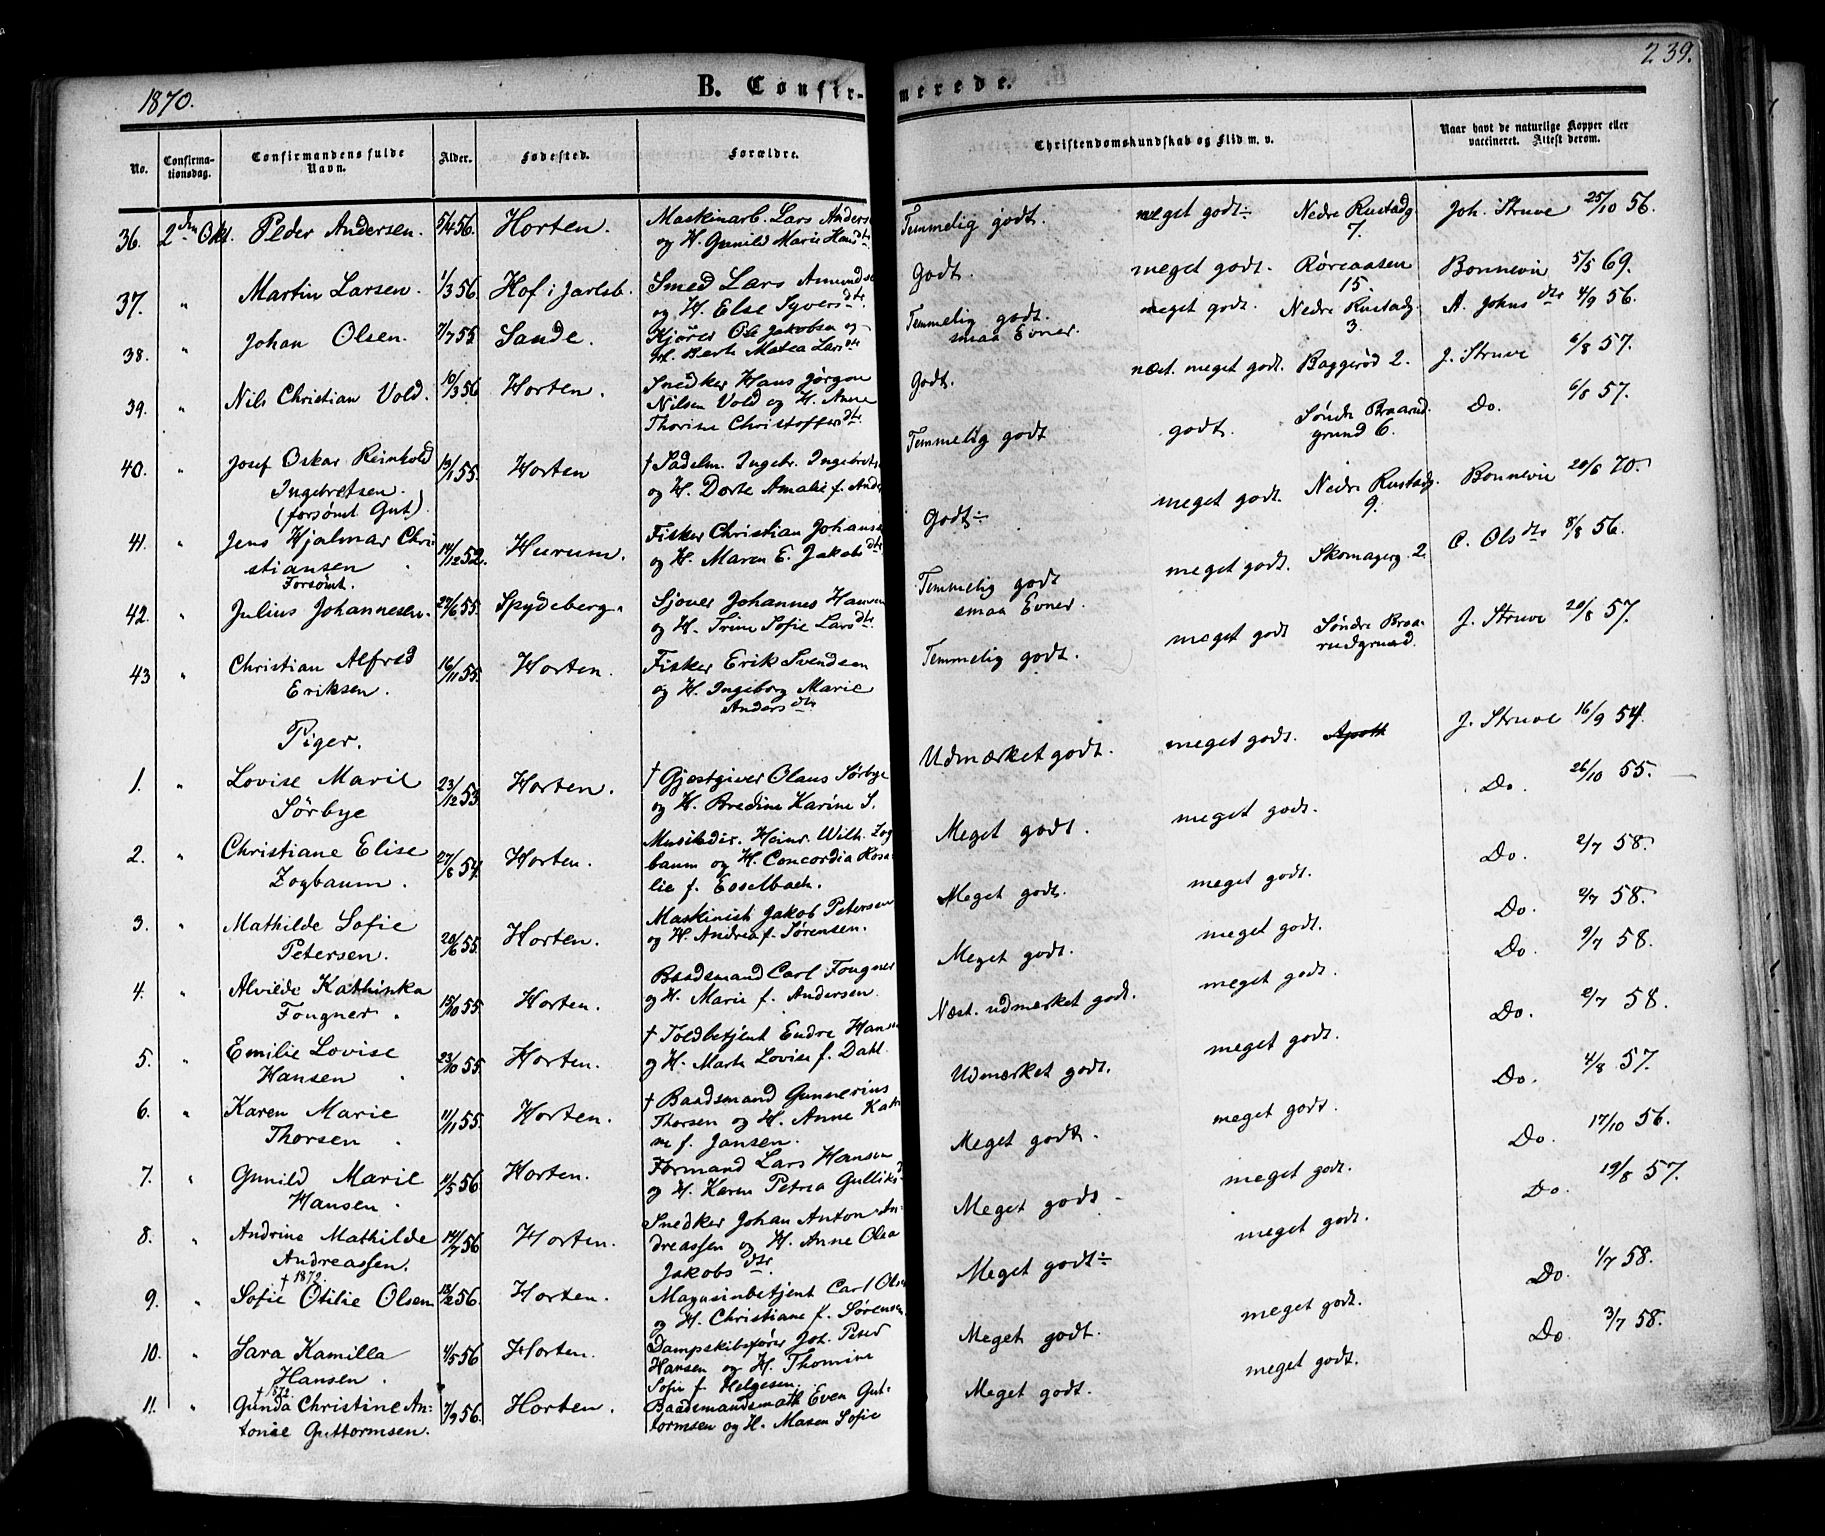 1870.
B. Confir-
merede.
239.
No.
Confirma-
tionsdag.
Confirmandens fulde
Navn.
Alder.
Fødested.
Forældre.
Christendomskundskab og Flid m. v.
Naar havt de naturlige Kopper eller
vaccineret. Attest derom.
36. 2den Okt. Peder Andersen. 5/4 56. Horten. Maskinarb. Lars Anders
og H. Gunild Marie Hansdtr
Temmelig godt. meget godt÷ Nedre Rustadg. 7. Joh. Struve 25/10 56.
37. " Martin Larsen. 1/3 56. Hof i Jarlsb. Smed Lars Amunds
og H. Else Syversdtr
Godt. meget godt. Røreaasen 15. Bonnevie 5/5 69.
38. " Johan Olsen. 7/7 55. Sande. Kjører Ole Jakobsen og
H. Berte Matea Larsdtr
Temmelig godt.
smaa Evner. meget godt. Nedre Rustadg. 3. A. Johnsdtr 4/9 56.
39. " Nils Christian Vold. 10/3 56. Horten. Snedker Hans Jørgen
Nilsen Vold og H. Anne
Thorine Christoffersdtr
Godt. næst. meget godt. Baggerød 2. J. Struve 6/8 57.
40. " Josef Oskar Reinhold
Ingebretsen.
(forsømt Gut). 13/1 55. Horten † Sadelm. Ingebr. Ingebrets
og H. Dorte Amalie f. Ande
Temmelig godt godt. Søndre Braarud
grund 6. Do. 6/8 57.
41. " Jens Hjalmar Chri-
stiansen
Forsømt. 14/12 52. Hurum. Fisker Christian Johans
og H. Maren E. Jakobsdtr
Godt÷ meget godt. Nedre Rustadg. 9. Bonnevie 20/6 70.
42. " Julius Johannesen. 22/6 55. Spydeberg. Sjouer Johannes Hansen
og H. Trine Sofie Larsdtr.
Temmelig godt
smaa Evner. meget godt. Skomagerg. 2. C. Olsdtr 8/8 56.
43 " Christian Alfred
Eriksen. 16/11 55. Horten. Fisker Erik Svendsen
og H. Ingeborg Marie
Andersdtr
Temmelig godt. meget godt Søndre Braa-
rudgrund. J. Struve 20/8 57.
Piger.
1. " Lovise Marie
Sørbye 23/12 53. Horten. † Gjæstgiver Olaus Sørbye
og H. Bredine Karine S.
Udmærket godt. meget godt. Apoth J. Struve 16/9 54.
2. " Christiane Elise
Zogbaum. 27/8 54. Horten. Musikdir. Heinr. Wilh. Zog
baum og H. Concordia Rosa-
lie f. Esselbach.
Meget godt. meget godt. Do. 26/10 55.
3. " Mathilde Sofie
Petersen. 20/6 55. Horten. Maskinist Jakob Petersen
og H. Andrea f. Sørensen.
Meget godt. meget godt. Do. 2/7 58.
4. " Alvilde Kathinka
Fougner. 15/10 55. Horten. Baadsmand Carl Fougner
og H. Marie f. Andersen.
Meget godt. meget godt. Do. 2/7 58.
5. " Emilie Lovise
Hansen 23/10 55. Horten. † Toldbetjent Endre Hans
og H. Marte Lovise f. Dahl.
Næst. udmærket godt. meget godt. Do. 9/7 58.
6. " Karen Marie
Thorsen 11/11 55. Horten. † Baadsmand Gunnerius
Thorsen og H. Anne Kat
ne f. Jansen.
Udmærket godt. meget godt. Do. 2/7 58.
7. " Gunild Marie
Hansen. 11/5 56. Horten. Formand Lars Hansen
og H. Karen Petrea Gulliks
Meget godt. meget godt. Do. 4/8 57.
8. " Andrine Mathilde
Andreassen. 14/7 56 Horten. Snedker Johan Anton An-
dreassen og H. Anne Olea
Jakobsdtr.
Meget godt - meget godt. Do. 17/10 56.
9. " † 1872.
Sofie Otilie Olsen 18/2 56. Horten. Magasinbetjent Carl Olse
og H. Christiane f. Sørensen
Meget godt÷ meget godt. Do. 19/8 57.
10. " Sara Kamilla
Hansen. 4/5 56 Horten. Dampskibsfører Joh. Peter
Hansen og H. Thomine
Sofie f. Helgesen.
Meget godt. meget godt. Do. 1/7 58.
11. " Gunda Christine An-
tonie Guttormsen. 7/9 56. Horten. Baadsmandsmath Even Gut-
tormsen og H. Maren Sofie
Meget godt. meget godt. Do. 3/7 58.